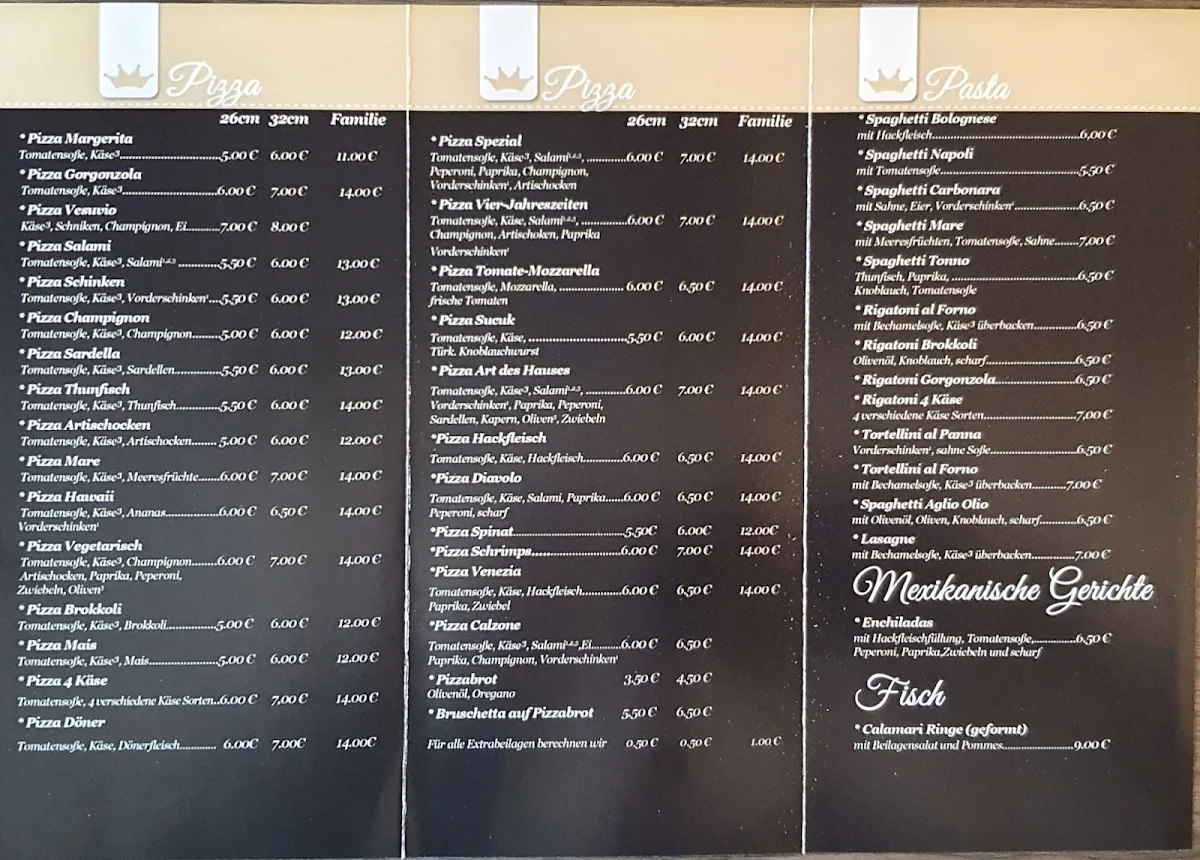 Pizza
26cm 32cm Familie
* Pizza Margerita
Tomatensoße, Käse³..............................5.00 € 6.00 € 11.00 €
* Pizza Gorgonzola
Tomatensoße, Käse³..............................6.00 € 7.00 € 14.00 €
* Pizza Vesuvio
Käse³, Schniken, Champignon, Ei..........7.00 € 8.00 €
* Pizza Salami
Tomatensoße, Käse³, Salami¹·²·³ ............5,50 € 6.00 € 13.00 €
* Pizza Schinken
Tomatensoße, Käse³, Vorderschinken¹...5,50 € 6.00 € 13.00 €
* Pizza Champignon
Tomatensoße, Käse³, Champignon.......5.00 € 6.00 € 12.00 €
* Pizza Sardella
Tomatensoße, Käse³, Sardellen............5,50 € 6.00 € 13.00 €
* Pizza Thunfisch
Tomatensoße, Käse³, Thunfisch............5,50 € 6.00 € 14.00 €
* Pizza Artischocken
Tomatensoße, Käse³, Artischocken........5.00 € 6.00 € 12.00 €
* Pizza Mare
Tomatensoße, Käse³, Meeresfrüchte......6.00 € 7.00 € 14.00 €
* Pizza Hawaii
Tomatensoße, Käse³, Ananas...............6.00 € 6,50 € 14.00 €
Vorderschinken¹
* Pizza Vegetarisch
Tomatensoße, Käse³, Champignon.......6.00 € 7.00 € 14.00 €
Artischocken, Paprika, Peperoni,
Zwiebeln, Oliven⁵
* Pizza Brokkoli
Tomatensoße, Käse³, Brokkoli...............5.00 € 6.00 € 12.00 €
* Pizza Mais
Tomatensoße, Käse³, Mais.....................5.00 € 6.00 € 12.00 €
* Pizza 4 Käse
Tomatensoße, 4 verschiedene Käse Sorten..6.00 € 7,00 € 14.00 €
* Pizza Döner
Tomatensoße, Käse, Dönerfleisch........... 6.00€ 7.00€ 14.00€
Pizza
26cm 32cm Familie
* Pizza Spezial
Tomatensoße, Käse³, Salami¹·²·³, ............6.00 € 7.00 € 14.00 €
Peperoni, Paprika, Champignon,
Vorderschinken¹, Artischocken
* Pizza Vier-Jahreszeiten
Tomatensoße, Käse, Salami¹·²·³, ............6.00 € 7.00 € 14.00 €
Champignon, Artischoken, Paprika
Vorderschinken¹
* Pizza Tomate-Mozzarella
Tomatensoße, Mozzarella, .................... 6.00 € 6,50 € 14.00 €
frische Tomaten
* Pizza Sucuk
Tomatensoße, Käse, ...............................5,50 € 6.00 € 14.00 €
Türk. Knoblauchwurst
* Pizza Art des Hauses
Tomatensoße, Käse³, Salami¹·²·³, ............6.00 € 7.00 € 14.00 €
Vorderschinken¹, Paprika, Peperoni,
Sardellen, Kapern, Oliven⁵, Zwiebeln
*Pizza Hackfleisch
Tomatensoße, Käse, Hackfleisch............6.00 € 6,50 € 14.00 €
*Pizza Diavolo
Tomatensoße, Käse, Salami, Paprika.....6.00 € 6,50 € 14.00 €
Peperoni, scharf
*Pizza Spinat..........................................5,50€ 6.00€ 12.00€
*Pizza Schrimps.....................6.00 € 7.00 € 14.00 €
*Pizza Venezia
Tomatensoße, Käse, Hackfleisch............6.00 € 6,50 € 14.00 €
Paprika, Zwiebel
*Pizza Calzone
Tomatensoße, Käse³, Salami¹·²·³,Ei.........6.00 € 6,50 €
Paprika, Champignon, Vorderschinken¹
* Pizzabrot 3,50 € 4,50 €
Olivenöl, Oregano
* Bruschetta auf Pizzabrot 5,50 € 6,50 €
Für alle Extrabeilagen berechnen wir 0,50 € 0,50 € 1.00 €
Pasta
* Spaghetti Bolognese
mit Hackfleisch..............................................6,00 €
* Spaghetti Napoli
mit Tomatensoße...........................................5,50 €
* Spaghetti Carbonara
mit Sahne, Eier, Vorderschinken¹....................6,50 €
* Spaghetti Mare
mit Meeresfrüchten, Tomatensoße, Sahne.......7,00 €
* Spaghetti Tonno
Thunfisch, Paprika, ........................................6,50 €
Knoblauch, Tomatensoße
* Rigatoni al Forno
mit Bechamelsoße, Käse³ überbacken............6,50 €
* Rigatoni Brokkoli
Olivenöl, Knoblauch, scharf............................6,50 €
* Rigatoni Gorgonzola........................6,50 €
* Rigatoni 4 Käse
4 verschiedene Käse Sorten............................7,00 €
* Tortellini al Panna
Vorderschinken¹, sahne Soße..........................6,50 €
* Tortellini al Forno
mit Bechamelsoße, Käse³ überbacken..........7.00 €
* Spaghetti Aglio Olio
mit Olivenöl, Oliven, Knoblauch, scharf...........6,50 €
* Lasagne
mit Bechamelsoße, Käse³ überbacken............7.00 €
Mexikanische Gerichte
* Enchiladas
mit Hackfleischfüllung, Tomatensoße,............6,50 €
Peperoni, Paprika,Zwiebeln und scharf
Fisch
* Calamari Ringe (geformt)
mit Beilagensalat und Pommes.......................9,00 €